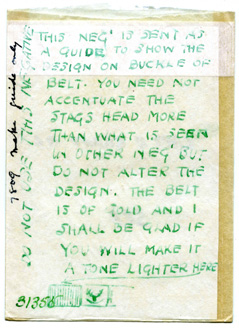 THIS NEG' IS SENT AS
A GUIDE TO SHOW THE
DESIGN ON BUCKLE OF
BELT. YOU NEED NOT
ACCENTUATE THE
STAGS HEAD MORE
THAN WHAT IS SEEN
IN OTHER NEG' BUT
DO NOT ALTER THE
DESIGN. THE BELT
IS OF GOLD AND I
SHALL BE GLAD IF
YOU WILL MAKE IT
A TONE LIGHTER HERE
31356
DO NOT USE THIS NEGATIVE
7809 makes guide only